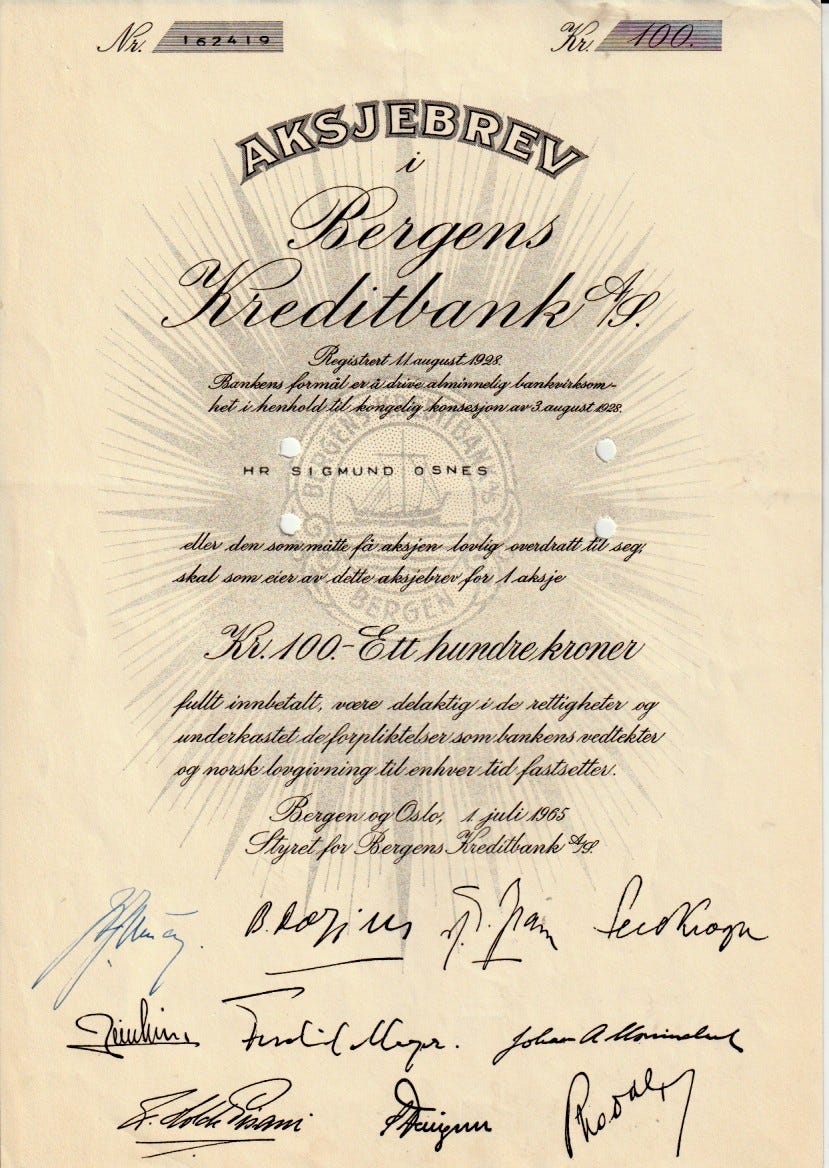 Nr. 162419 Kr. 100.
AKSJEBREV
i
Bergens
Kreditbank A/S.
Registrert 11 august 1928.
Bankens formål er å drive alminnelig bankvirksom-
het i henhold til kongelig konsesjon av 3. august 1928.
HR SIGMUND OSNES
eller den som måtte få aksjen lovlig overdratt til seg,
skal som eier av dette aksjebrev for 1 aksje
BERGEN
Kr. 100.- Ett hundre kroner
fullt innbetalt, være delaktig i de rettigheter og
underkastet de forpliktelser som bankens vedtekter
og norsk lovgivning til enhver tid fastsetter.
Bergen og Oslo, 1 juli 1965
Styret for Bergens Kreditbank A/S.